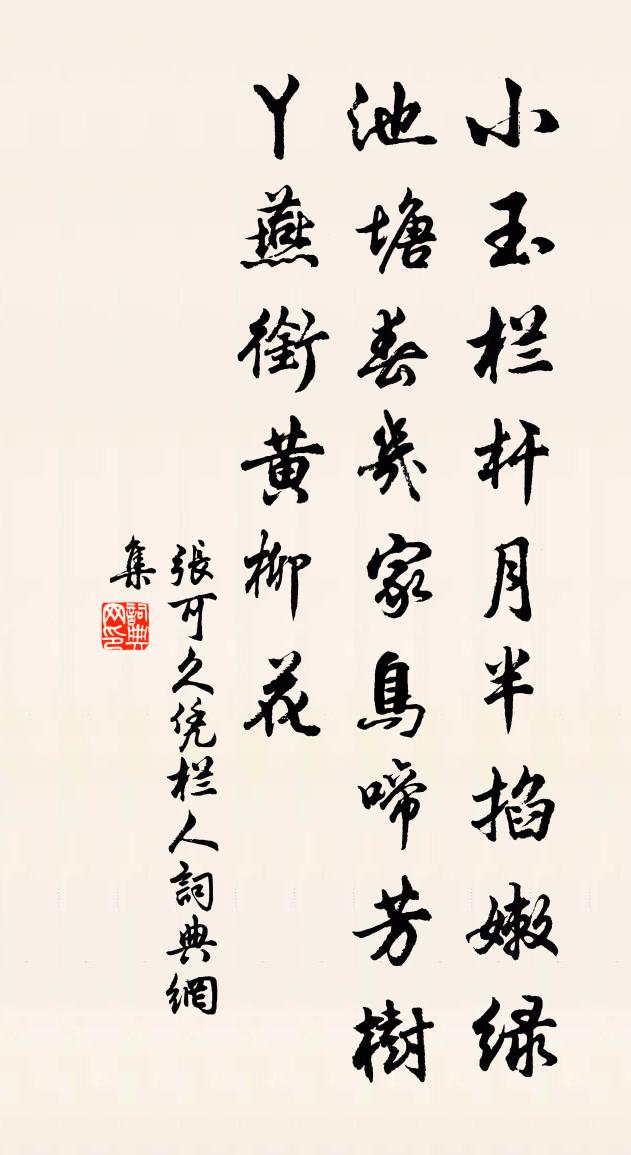 小玉栏杆月半掐嫩绿
池塘春幾家鳥啼芳樹
丫燕銜黃柳花
張可久凭栏人詞典網
集
詞典網印